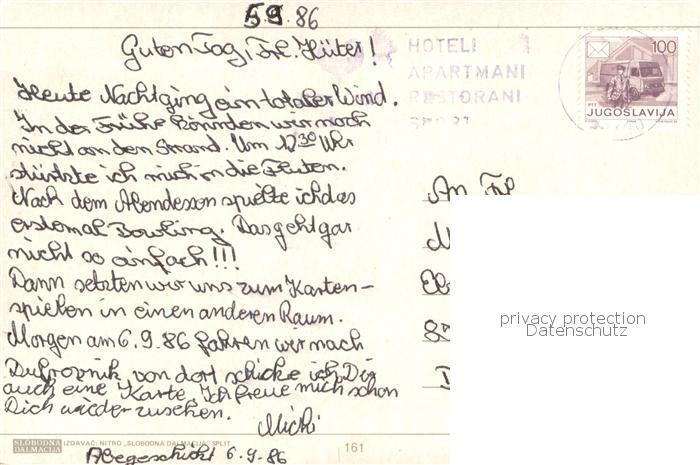 5.9.86
Guten Tag, Frl. Hüter!
HOTELI
APARTMANI
RESTORANI
SPORT
100
PTT
JUGOSLAVIJA
Heute Nacht ging ein totaler Wind.
In der Frühe könnden wir noch
nicht an den Strand. Um 12 30 Uhr
stürtzte ich mich in die Fluten.
Nach dem Abendessen spielte ich das
erstemal Bowling. Das geht gar
nicht so einfach!!!
Dann setzten wir uns zum Karten-
spielen in einen anderen Raum.
Morgen am 6.9.86 fahren wir nach
Dubrovnik, von dort schicke ich Dir
auch eine Karte. Ich freue mich schon
Dich wieder zusehen.
Michi
An Frl
privacy protection
Datenschutz
SLOBODNA
DALMACIJA
IZDAVAČ: NITRO „SLOBODNA DALMACIJA" SPLIT
161
Abgeschickt 6.9.86